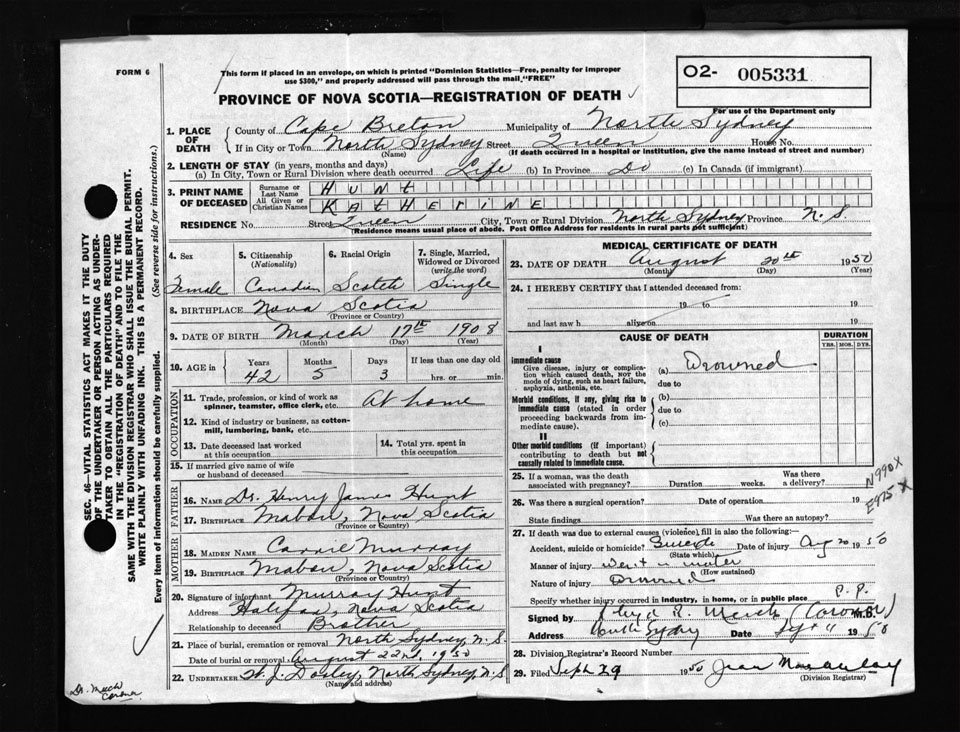 FORM 6
This form if placed in an envelope, on which is printed "Dominion Statistics—Free, penalty for improper
use $300," and properly addressed will pass through the mail "FREE"
O2- 005331
For use of the Department only
PROVINCE OF NOVA SCOTIA—REGISTRATION OF DEATH
1. PLACE OF DEATH { County of Cape Breton Municipality of North Sydney
If in City or Town North Sydney Street Queen House No.
(Name) (If death occurred in a hospital or institution, give the name instead of street and number)
2. LENGTH OF STAY (in years, months and days)
(a) In City, Town or Rural Division where death occurred Life (b) In Province Do (c) In Canada (if immigrant)
3. PRINT NAME OF DECEASED { Surname or Last Name HUNT
All Given or Christian Names KATHERINE
RESIDENCE No. Street Queen City, Town or Rural Division North Sydney Province N. S.
(Residence means usual place of abode. Post Office Address for residents in rural parts not sufficient)
4. Sex Female
5. Citizenship (Nationality) Canadian
6. Racial Origin Scotch
7. Single, Married, Widowed or Divorced (write the word) Single
8. BIRTHPLACE Nova Scotia
(Province or Country)
9. DATE OF BIRTH March 17th 1908
(Month) (Day) (Year)
10. AGE in { Years 42 Months 5 Days 3 If less than one day old
hrs. or min.
OCCUPATION
11. Trade, profession, or kind of work as
spinner, teamster, office clerk, etc. At home
12. Kind of industry or business, as cotton-
mill, lumbering, bank, etc.
13. Date deceased last worked
at this occupation
14. Total yrs. spent in
this occupation
15. If married give name of wife
or husband of deceased
FATHER
16. NAME Dr. Henry James Hunt
17. BIRTHPLACE Mabou, Nova Scotia
(Province or Country)
MOTHER
18. MAIDEN NAME Carrie Murray
19. BIRTHPLACE Mabou, Nova Scotia
(Province or Country)
20. Signature of informant Murray Hunt
Address Halifax, Nova Scotia
Relationship to deceased Brother
21. Place of burial, cremation or removal North Sydney, N. S.
Date of burial or removal August 22nd 1950
22. UNDERTAKER North Sydney, N. S.
(Name and address)
MEDICAL CERTIFICATE OF DEATH
23. DATE OF DEATH August 20th 1950
(Month) (Day) (Year)
24. I HEREBY CERTIFY that I attended deceased from:
19 to 19
and last saw h alive on 19
CAUSE OF DEATH
DURATION
YRS. MOS. DYS.
I
Immediate cause
Give disease, injury or complica-
tion which caused death, NOT the
mode of dying, such as heart failure,
asphyxia, asthenia, etc.
(a) Drowned
due to
Morbid conditions, if any, giving rise to
immediate cause (stated in order
proceeding backwards from im-
mediate cause).
(b)
due to
(c)
II
Other morbid conditions (if important)
contributing to death but not
causally related to immediate cause.
25. If a woman, was the death
associated with pregnancy? Duration weeks. Was there
a delivery?
N990X
E975 X
26. Was there a surgical operation? Date of operation 19
State findings Was there an autopsy?
27. If death was due to external causes (violence) fill in also the following:
Accident, suicide or homicide? Suicide Date of injury Aug 20 1950
(State which)
Manner of injury Went in water
(How sustained)
Nature of injury Drowned
Specify whether injury occurred in industry, in home, or in public place P. P.
Signed by (Coroner) M.D.
Address North Sydney Date Sept 4 1950
28. Division Registrar's Record Number
29. Filed Sept 29 1950 Jean Macaulay
(Division Registrar)
SEC. 46—VITAL STATISTICS ACT MAKES IT THE DUTY
OF THE UNDERTAKER OR PERSON ACTING AS UNDER-
TAKER TO OBTAIN ALL THE PARTICULARS REQUIRED
IN THE "REGISTRATION OF DEATH" AND TO FILE THE
SAME WITH THE DIVISION REGISTRAR WHO SHALL ISSUE THE BURIAL PERMIT.
WRITE PLAINLY WITH UNFADING INK. THIS IS A PERMANENT RECORD.
Every item of information should be carefully supplied. (See reverse side for instructions.)
Dr. Meech
Coroner